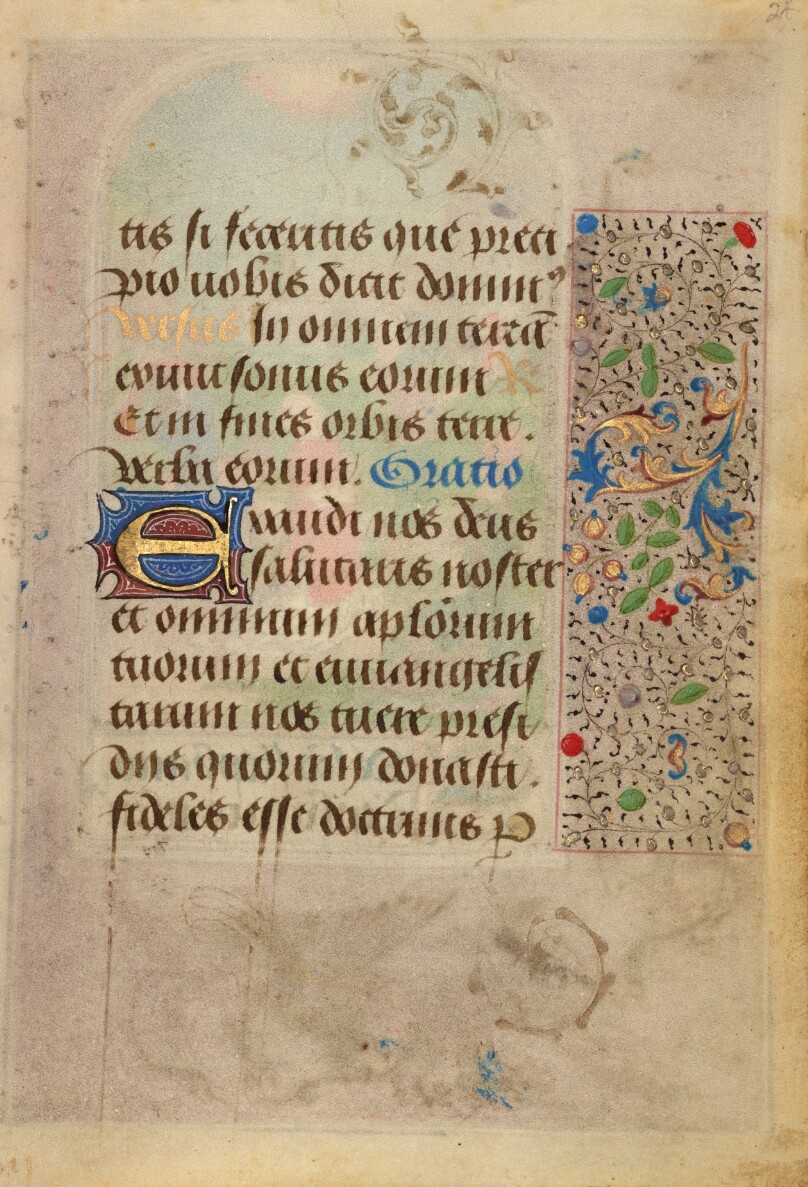 24
tis si feceritis que preci
pio uobis dicit domin⁹
Versus In omnem terrā
exiuit sonus eorum R
Et in fines orbis terre.
Verba eorum. Oratio
Exaudi nos deus
salutaris noster
et omnium aplōrum
tuorum et euuangelis
tarum nos tuere presi
dijs quorum donasti.
fideles esse doctrinis p